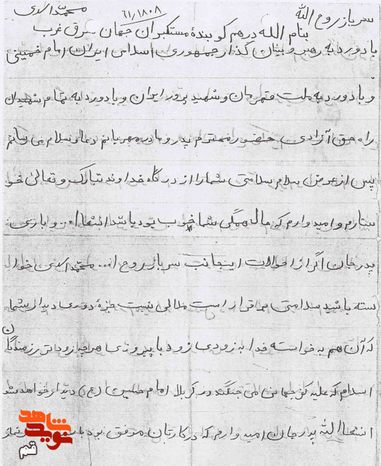 سرباز روح الله
محمد اسدی
۶۱/۸/۰۸
بنام الله درهم کوبنده مستکبران جهان شرق غرب
با درود به رهبر و بنیان گذار جمهوری اسلامی ایران امام خمینی
و با درود به ملت قهرمان و شهید پرور ایران و با درود به تمام شهیدان
راه حق آزادی حضور محترم پدر و مادر مهربانم دعا و سلام می رسانم
پس از عرض سلام سلامتی شما را از درگاه خداوند تبارک و تعالی خو
ستارم و امیدوارم که حال همگی شما خوب بوده باشد انشاالله و باری
پدر جان اگر از احوالات اینجانب سرباز روح ا... محمد اسدی خواا
سته باشید سلامتی برقرار است ملالی نیست جزء دوری دیدار شما
که آن هم بخواسته خدا بزودی زود با پیروزی هر چه زودتر رزمندگان
اسلام که علیه کفر جهانی می جنگند در کربلا امام حسین (ع) دیدار خواهد شد
انشاالله پدر جان امیدوارم که در کارتان موفق بوده
شاهد
نوید
قم